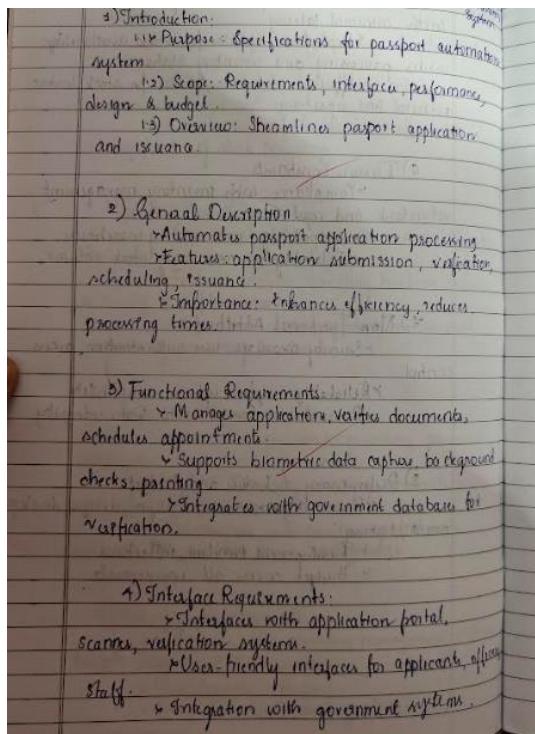 1) Introduction:
1.1) Purpose: Specifications for passport automation
system
1.2) Scope: Requirements, interfaces, performance,
design & budget.
1.3) Overview: Streamlines passport application
and issuance
2) General Description
Automates passport application processing
Features: application submission, verification,
scheduling, issuance.
Importance: Enhances efficiency, reduces
processing times.
3) Functional Requirements:
Manages application, verifies documents,
schedules appointments.
Supports biometric data capture, background
checks, printing
Integrates with government databases for
verification.
4) Interface Requirements:
Interfaces with application portal,
scanner, verification systems.
User-friendly interfaces for applicants,
staff.
Integration with government systems.
System